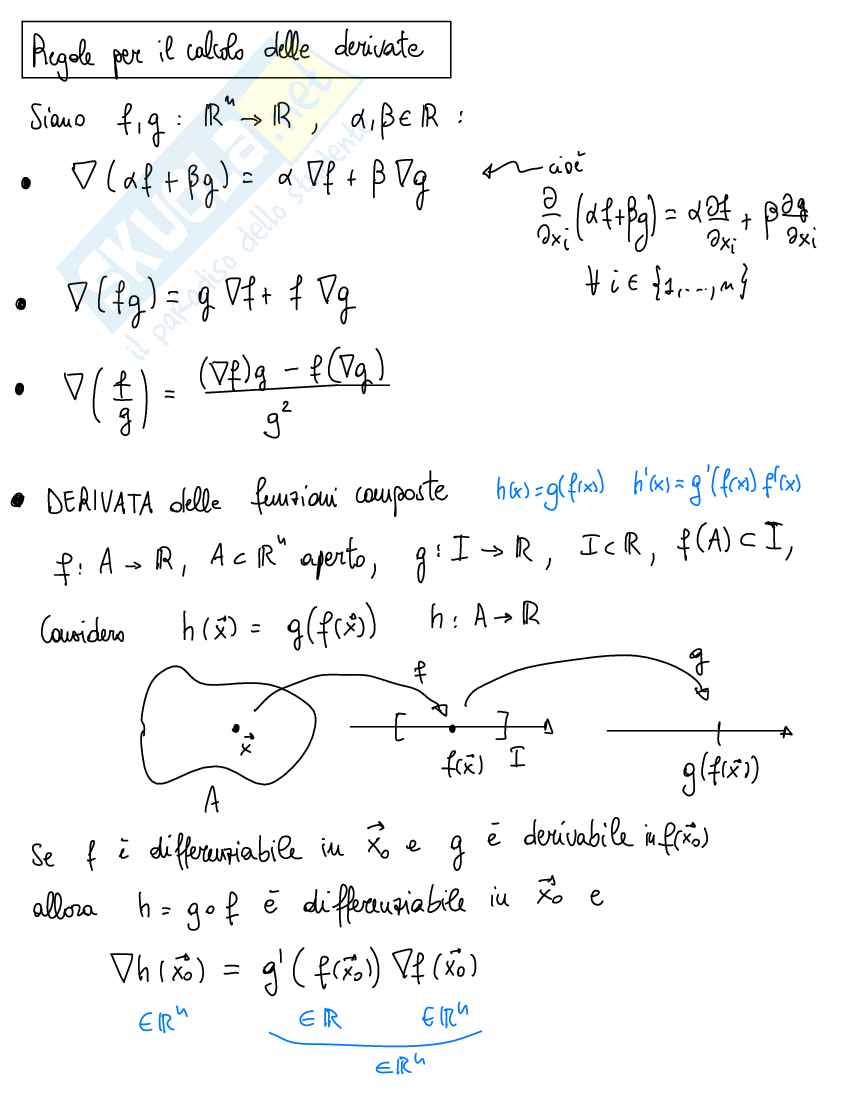 Regole per il calcolo delle derivate
Siano f, g : ℝⁿ → ℝ , α, β ∈ ℝ :
• ∇(αf + βg) = α ∇f + β ∇g
cioè
∂/∂xᵢ (αf+βg) = α ∂f/∂xᵢ + β ∂g/∂xᵢ
∀ i ∈ {1,...,n}
• ∇(fg) = g ∇f + f ∇g
• ∇(f/g) = ((∇f)g − f(∇g))/g²
• DERIVATA delle funzioni composte h(x)=g(f(x)) h'(x)=g'(f(x)) f'(x)
f : A → ℝ, A ⊂ ℝⁿ aperto, g : I → ℝ, I ⊂ ℝ, f(A) ⊂ I,
Considero h(x⃗) = g(f(x⃗)) h : A → ℝ
f
g
x⃗
f(x⃗) I
g(f(x⃗))
A
Se f è differenziabile in x⃗₀ e g è derivabile in f(x⃗₀)
allora h = g∘f è differenziabile in x⃗₀ e
∇h(x⃗₀) = g'(f(x⃗₀)) ∇f(x⃗₀)
∈ℝⁿ ∈ℝ ∈ℝⁿ
∈ℝⁿ
SKUOLA.net
il paradiso dello studente